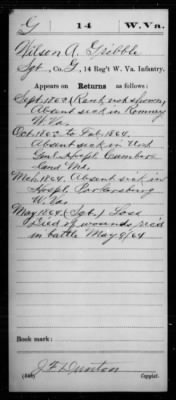 G | 14 | W. Va.
Wilson A. Gribble
Sgt., Co. G, 14 Reg't W. Va. Infantry.
Appears on Returns as follows:
Sept. 1863 (Rank not shown)
Absent sick in Romney
W. Va.
Oct. 1863 to Feb. 1864.
Absent sick in
Genl Hospl. Cumber-
land Md.
Mch. 1864. Absent sick in
Hospl. Parkersburg
W. Va.
May 1864 (Sgt.) Loss
Died of wounds rec'd
in battle May 9/64
Book mark:
J F Dunton
Copyist.